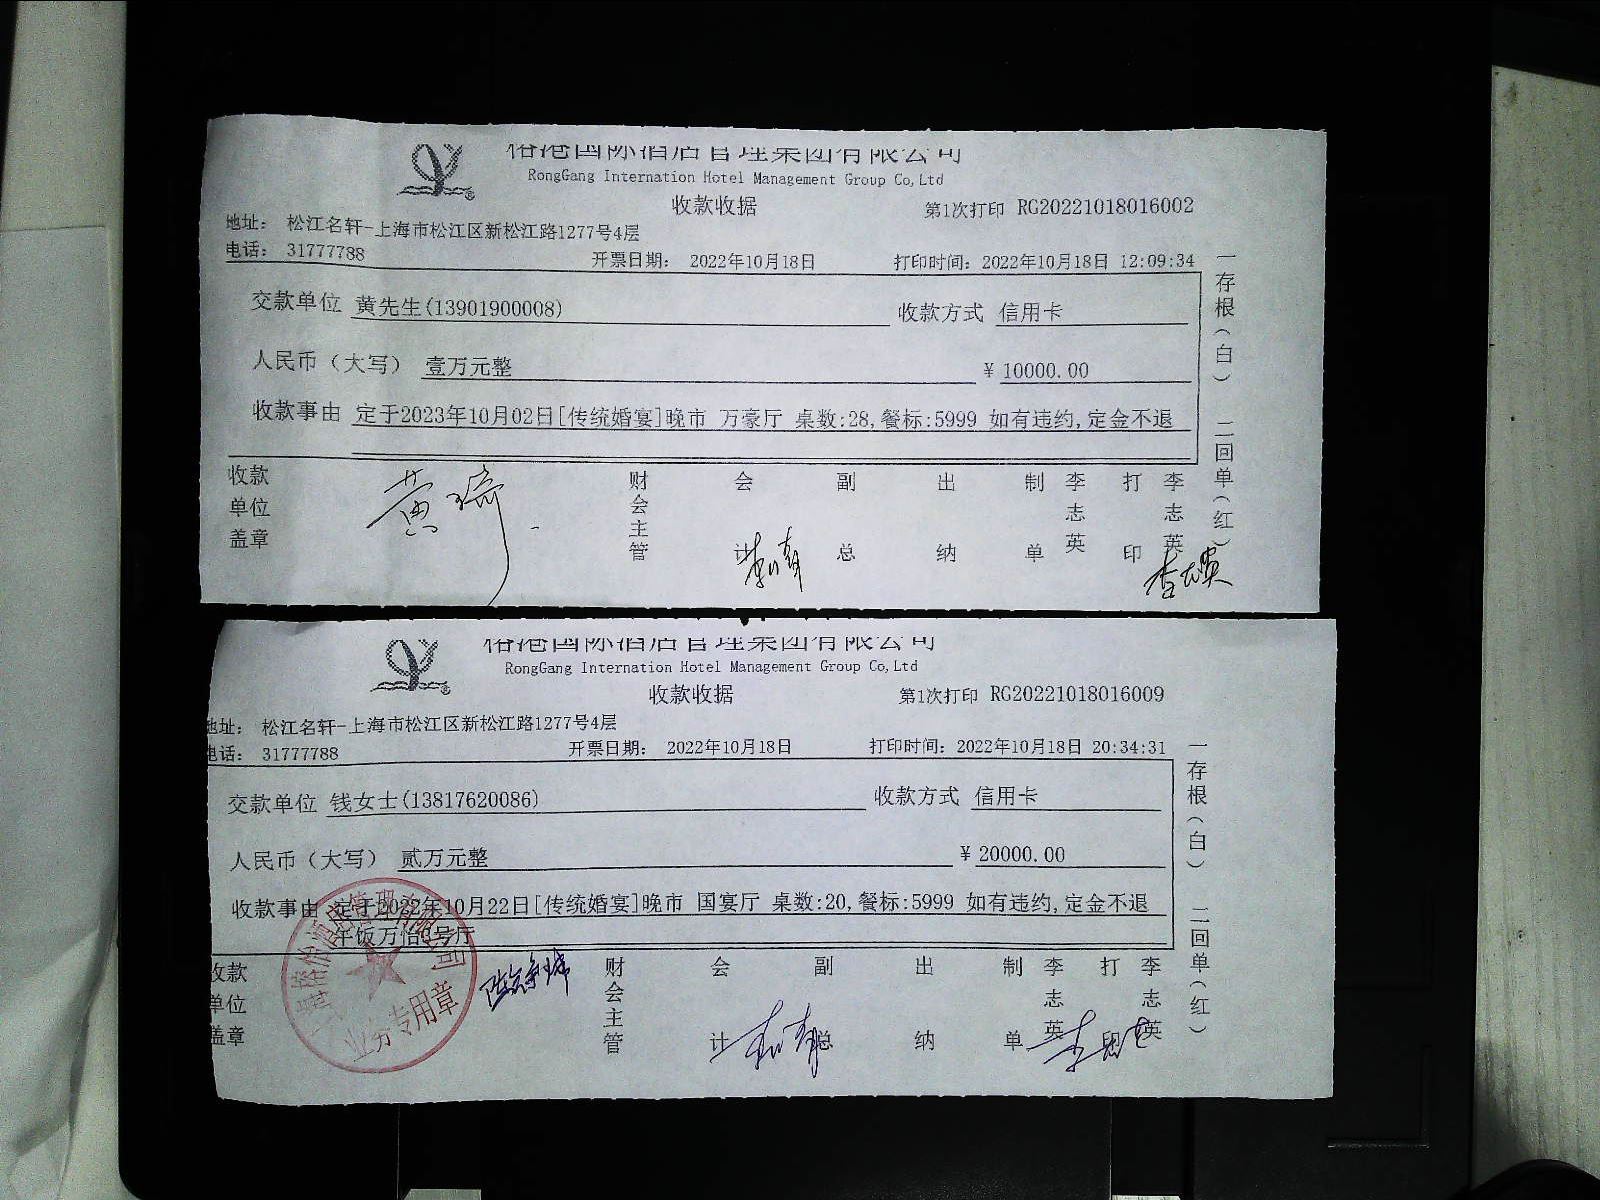 国际酒店管理集团有限公司
RongGang Internation Hotel Management Group Co,Ltd
收款收据
第1次打印 RG20221018016002
地址： 松江名轩-上海市松江区新松江路1277号4层
电话： 31777788
开票日期： 2022年10月18日
打印时间：2022年10月18日 12:09:34
交款单位 黄先生(13901900008)
收款方式 信用卡
人民币（大写） 壹万元整
¥ 10000.00
收款事由 定于2023年10月02日[传统婚宴]晚市 万豪厅 桌数:28,餐标:5999 如有违约,定金不退
收款单位盖章
财会主管
会计
副总
出纳
制单 李志英
打印 李志英
一存根（白） 二回单（红）
国际酒店管理集团有限公司
RongGang Internation Hotel Management Group Co,Ltd
收款收据
第1次打印 RG20221018016009
地址： 松江名轩-上海市松江区新松江路1277号4层
电话： 31777788
开票日期： 2022年10月18日
打印时间：2022年10月18日 20:34:31
交款单位 钱女士(13817620086)
收款方式 信用卡
人民币（大写） 贰万元整
¥ 20000.00
收款事由 定于2022年10月22日[传统婚宴]晚市 国宴厅 桌数:20,餐标:5999 如有违约,定金不退
午饭万怡3号厅
业务专用章
收款单位盖章
财会主管
会计
副总
出纳
制单 李志英
打印 李志英
一存根（白） 二回单（红）